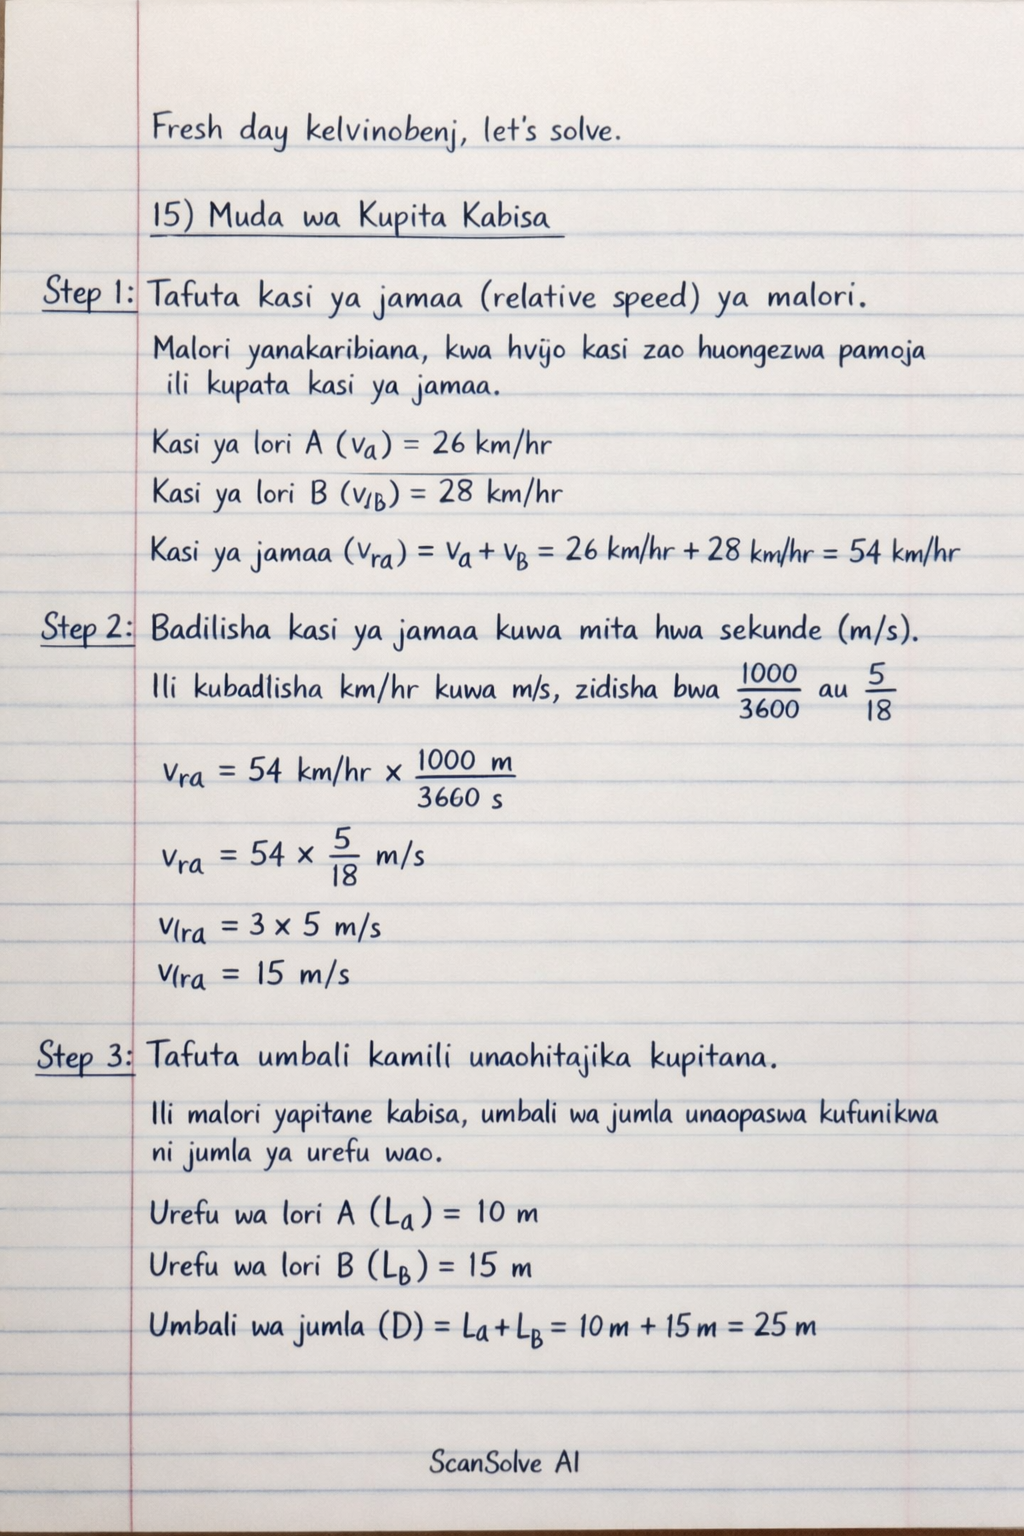 Fresh day kelvinobenj, let's solve.
15) Muda wa Kupita Kabisa
Step 1: Tafuta kasi ya jamaa (relative speed) ya malori.
Malori yanakaribiana, kwa hvijo kasi zao huongezwa pamoja
ili kupata kasi ya jamaa.
Kasi ya lori A (va) = 26 km/hr
Kasi ya lori B (v/B) = 28 km/hr
Kasi ya jamaa (vra) = va + vB = 26 km/hr + 28 km/hr = 54 km/hr
Step 2: Badilisha kasi ya jamaa kuwa mita hwa sekunde (m/s).
Ili kubadlisha km/hr kuwa m/s, zidisha bwa 1000/3600 au 5/18
vra = 54 km/hr × 1000 m/3660 s
vra = 54 × 5/18 m/s
v(ra = 3 × 5 m/s
v(ra = 15 m/s
Step 3: Tafuta umbali kamili unaohitajika kupitana.
Ili malori yapitane kabisa, umbali wa jumla unaopaswa kufunikwa
ni jumla ya urefu wao.
Urefu wa lori A (La) = 10 m
Urefu wa lori B (LB) = 15 m
Umbali wa jumla (D) = La + LB = 10 m + 15 m = 25 m
ScanSolve AI